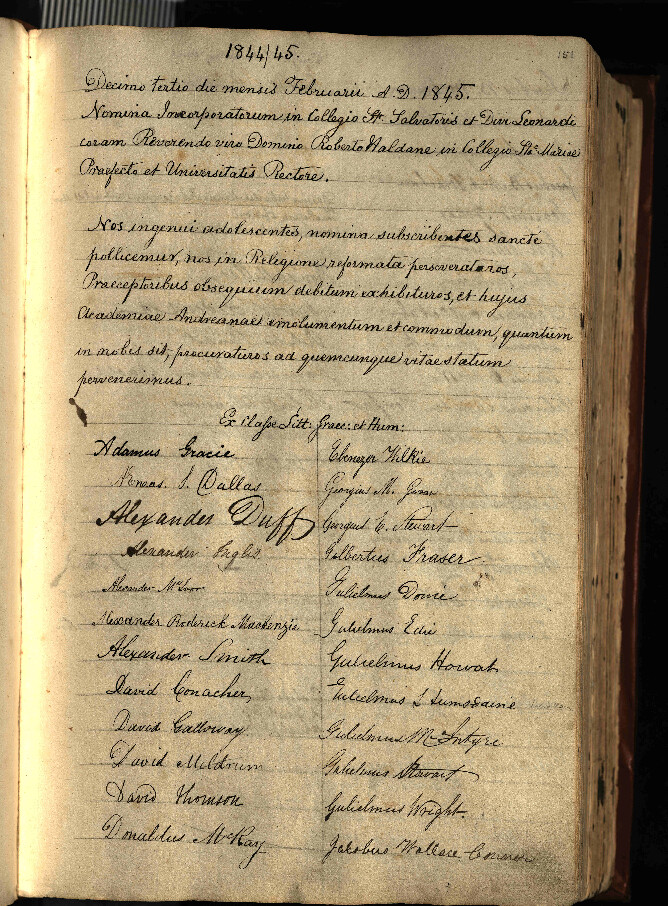 1844/45.
151
Decimo tertio die mensis Februarii A D. 1845.
Nomina Incorporatorum in Collegio Sti. Salvatoris et Divi Leonardi
coram Reverendo viro Domino Roberto Haldane in Collegio Stae Mariae
Praefecto et Universitatis Rectore.
Nos ingenui adolescentes, nomina subscribentes sancte
pollicemur, nos in Religione reformata perseveraturos,
Praeceptoribus obsequium debitum exhibituros, et hujus
Academiae Andreanae emolumentum et commodum, quantum
in nobis sit, procuraturos ad quemcunque vitae statum
pervenerimus.
Ex Classe Litt: Graec: et Hum:
Adamus Gracie
Dallas
Alexander Duff
Alexander Inglis
Alexander McIvor
Alexander Roderick Mackenzie
Alexander Smith
David Conacher
David Galloway
David Meldrum
David Thomson
Donaldus McKay
Ebenezer Wilkie
Georgius M.
Georgius E. Stewart
Gilbertus Fraser
Gulielmus
Gulielmus Edie
Gulielmus Howat
Gulielmus L Lumsdaine
Gulielmus McIntyre
Gulielmus Stewart
Gulielmus Wright.
Jacobus Wallace